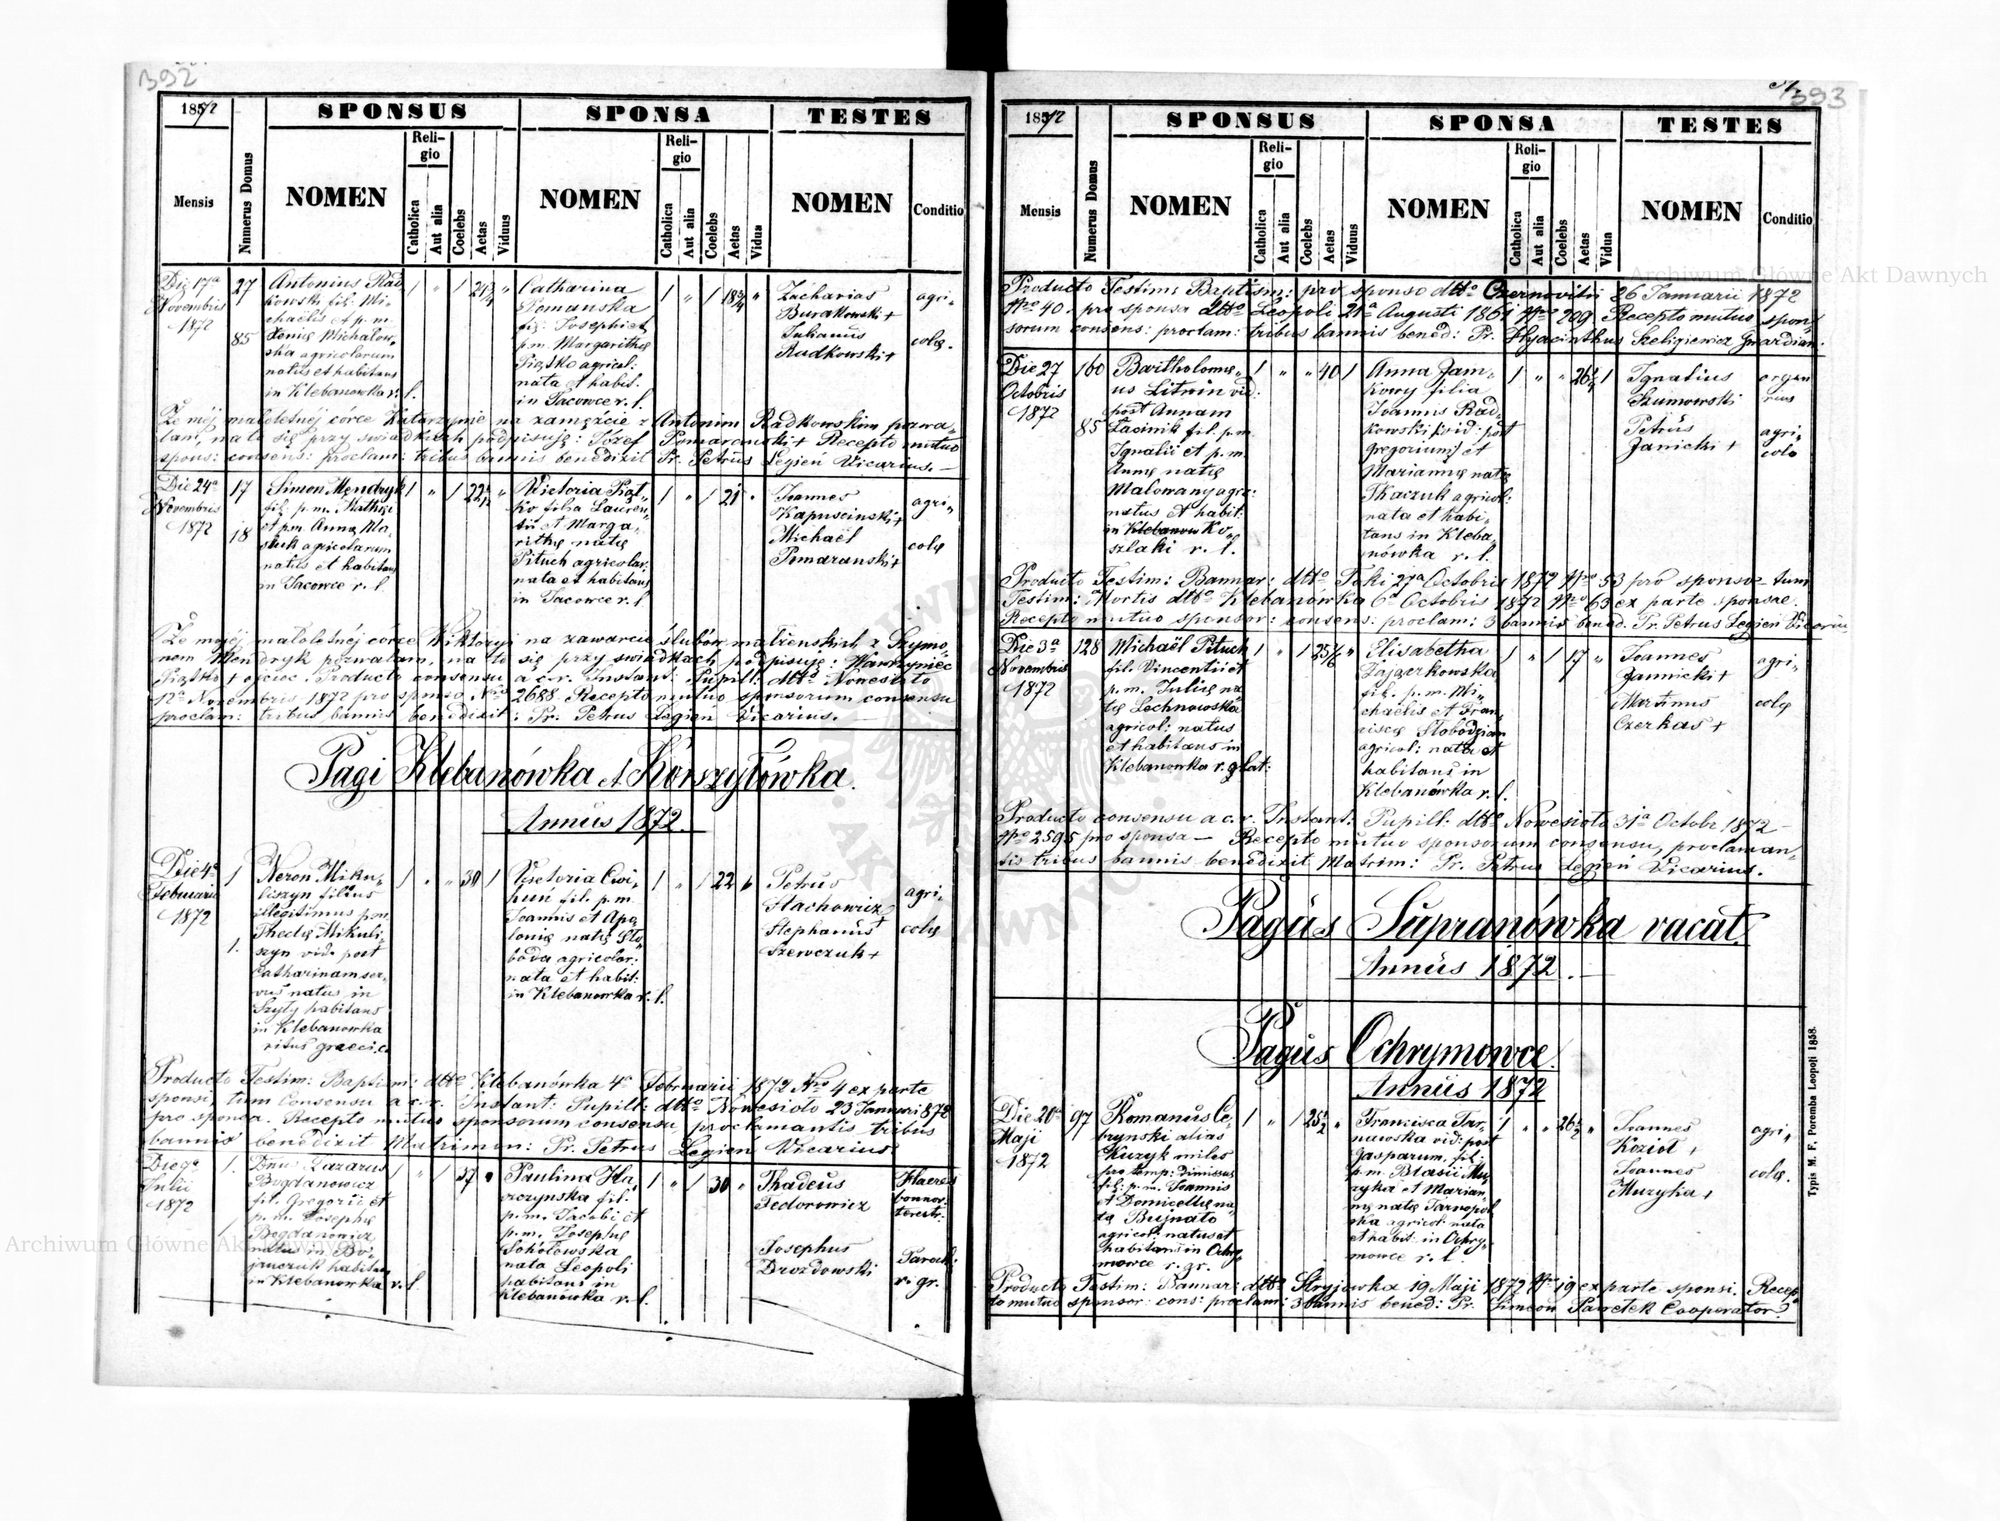 392
1872
SPONSUS
SPONSA
TESTES
Mensis
Numerus Domus
NOMEN
Religio
Catholica
Aut alia
Coelebs
Aetas
Viduus
NOMEN
Religio
Catholica
Aut alia
Coelebs
Aetas
Vidua
NOMEN
Conditio
Die 17a
Novembris
1872
27
85
Antonius Rad
kowski fil: Mi
chaelis et p. m.
Xeniæ Michalow
ska agricolarum
natus et habitans
in Klebanowka r. l.
Catharina
Pomanska
fil: Josephi et
p. m. Margarithæ
Piątko agricol:
nata et habit.
in Jacowce r. l.
Zacharias
Burakowski +
Julianus
Radkowski +
agri-
colæ.
Że mej małoletnéj córce Katarzynie na zamęźcie z Antonim Radkowskim pozwa-
lam, na to się przy świadkach podpisuję: Józef Pomaranski + Recepto mutuo
spons: consens: proclam: tribus bannis benedixit Pr. Petrus Legień Vicarius. —
Die 24a
Novembris
1872
17
18
Simon Mendryk
fil. p. m.
et p. m. Anna
agricolarum
natus et habitans
in Jacowce r. l.
Victoria Piąt-
ko filia Lauren-
tii et Marga-
rithæ natæ
Pituch agricolar:
nata et habitans
in Jacowce r. l.
21
Joannes
Kapuscinski +
Michaël
Pomaranski +
agri-
colæ
Że mojéj małoletnéj córce Wiktoryi na zawarcie ślubów małżenskich z Szymo-
nem Mendryk pozwalam, na to się przy świadkach podpisuję: Wawrzyniec
Piątko + ojciec. Producto consensu a c. r. Instant: Pupill: dtto Nowesioło
12a Novembris 1872 pro sponso Nro 2688. Recepto mutuo sponsorum consensu
proclam: tribus bannis benedixit: Pr. Petrus Legień Vicarius. —
Pagi Klebanówka et Korszyłówka.
Annus 1872.
Die 4a
Februarii
1872
1
1.
Neron Miku-
liszyn filius
illegitimus p. m.
Theclæ Mikuli-
szyn vid. post
Catharinam ser-
vus natus in
Szyły habitans
in Klebanowka
ritus græci c.
30
Victoria Cwi-
huń fil. p. m.
Joannis et Apo-
loniæ natæ Sło-
boda agricolar:
nata et habit:
in Klebanowka r. l.
22
Petrus
Stachowicz +
Stephanus
Szewczuk +
agri-
colæ
Producto Testim: Baptism: dtto Klebanówka 4a Februarii 1872 Nro 4 ex parte
sponsi, tum Consensu a c. r. Instant: Pupill: dtto Nowesioło 23 Januari 1872
pro sponsa. Recepto mutuo sponsorum consensu, proclamantis tribus
bannis benedixit Matrimon: Pr. Petrus Legień Vicarius
Die 9a
Julii
1872
1.
Dnus Lazarus
Bogdanowicz
fil. Gregorii et
p. m. Josephæ
Bogdanowicz
natus in
habitans
in Klebanowka r. l.
37
Paulina
fil.
p. m. Jacobi et
p. m. Josephæ
Sokołowska
nata Leopoli
habitans in
Klebanówka r. l.
30
Thadeus
Fedorowicz
Josephus
Drozdowski
Haeres
bonnor.
terestr:
Paroch:
r. gr.
393
1872
SPONSUS
SPONSA
TESTES
Mensis
Numerus Domus
NOMEN
Religio
Catholica
Aut alia
Coelebs
Aetas
Viduus
NOMEN
Religio
Catholica
Aut alia
Coelebs
Aetas
Vidua
NOMEN
Conditio
Producto Testim: Baptism: pro sponso dtto Czernovitii 26 Januarii 1872
Nro 40. pro sponsa dtto Leopoli 21a Augusti 1861 Nro 209 Recepto mutuo spon-
sorum consens: proclam: tribus bannis bened: Pr. Hyacinthus Szeligiewicz Gwardian.
Die 27
Octobris
1872
160
85
Bartholomæ-
us Litwin vid:
post Annam
Łasinik fil. p. m.
Ignatii et p. m.
Annæ natæ
Malowany agr:
natus et habit:
in Klebanow Ko-
szlaki r. l.
40
Anna Jam-
kowy filia
Joannis Rad-
kowski vid: post
Gregorium et
Mariannæ natæ
Tkaczuk agricol:
nata et habi-
tans in Kleba-
nówka r. l.
Ignatius
Szumowski
Petrus
Janicki +
organ
rius
agri-
cola
Producto Testim: Bannar: dtto Toki 27a Octobris 1872 Nro 53 pro sponso tum
Testim: Mortis dtto Klebanówka 6a Octobris 1872 Nro 63 ex parte sponsae.
Recepto mutuo sponsor: consens: proclam: 3 bannis bened. Pr. Petrus Legień Vicarius
Die 3a
Novembris
1872
128
Michaël Pituch
fil. Vincentii et
p. m. Juliæ na-
tæ Lechnowska
agricol: natus
et habitans in
Klebanowka r. lat:
Elisabetha
Zajączkowska
fil. p. m. Mi-
chaëlis et Fran-
ciscæ Słobodzian
agricol: nata et
habitans in
Klebanówka r. l.
17
Joannes
Jannicki +
Martinus
Czerkas +
agri-
colæ
Producto consensu a c. r. Instant: Pupill: dtto Nowesioło 31a Octobr 1872 —
Nro 2595 pro sponsa — Recepto mutuo sponsorum consensu, proclaman-
tis tribus bannis benedixit Matrim: Pr. Petrus Legień Vicarius.
Pagus Supranówka vacat.
Annus 1872. —
Pagus Ochrymowce.
Annus 1872
Die 20a
Maji
1872
97
Romanus Ce-
brynski alias
Kuzyk miles
pro temp: dimissus
fil: p. m. Joannis
et Domicellæ na-
ta Bujnato
agricol: natus et
habitans in Ochry-
mowce r. gr.
Francisca Tar-
nawska vid: post
Gasparum, fil:
p. m. Blasii Mu-
zyka et Marian-
næ natæ Tarnopol
ska agricol: nata
et habit: in Ochry-
mowce r. l.
Joannes
Kozioł +
Joannes
Muzyka +
agri-
colæ.
Producto Testim: Bannar: dtto Stryjowka 19 Maji 1872 Nro 19 ex parte sponsi. Recep
to mutuo sponsor: cons: proclam: 3 bannis bened: Pr. Simeon Pawełek Cooperator.
Typis M. F. Poremba Leopoli 1858.
Archiwum Główne Akt Dawnych
Archiwum Główne Akt Dawnych